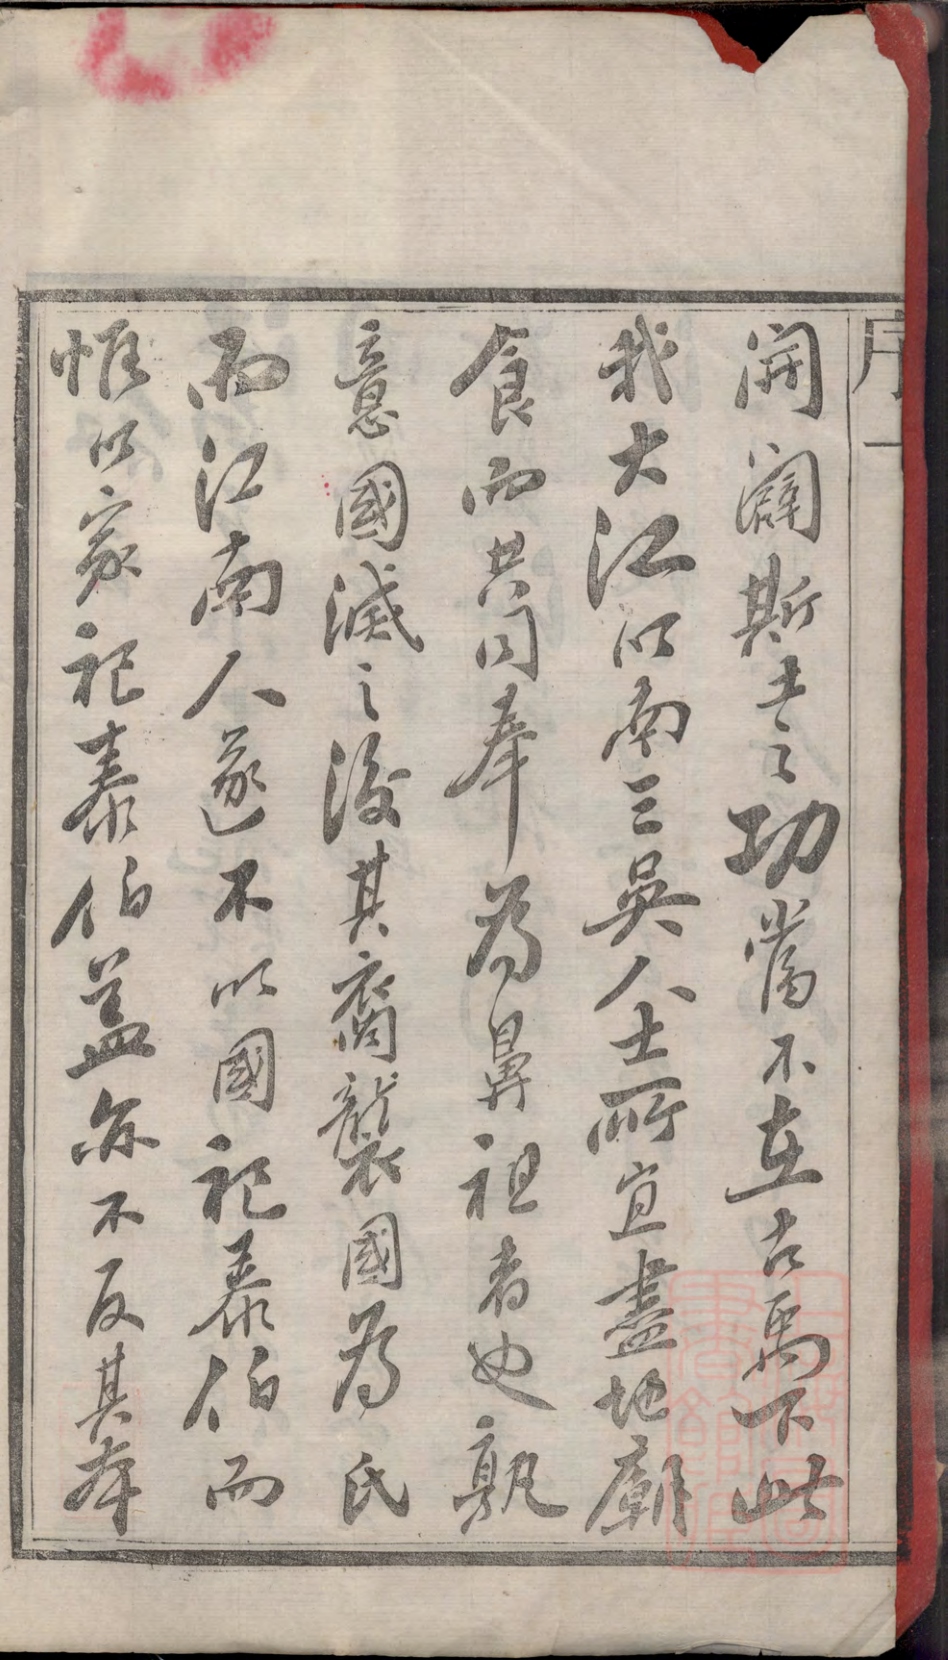 序一
開闢斯土之功當不在古禹下此
我大江以南三吳人士所宜盡地廟
食而共同奉為鼻祖者也孰
意國滅之後其裔襲國為氏
而江南人遂不以國祀泰伯而
惟以家祀泰伯蓋亦不反其本